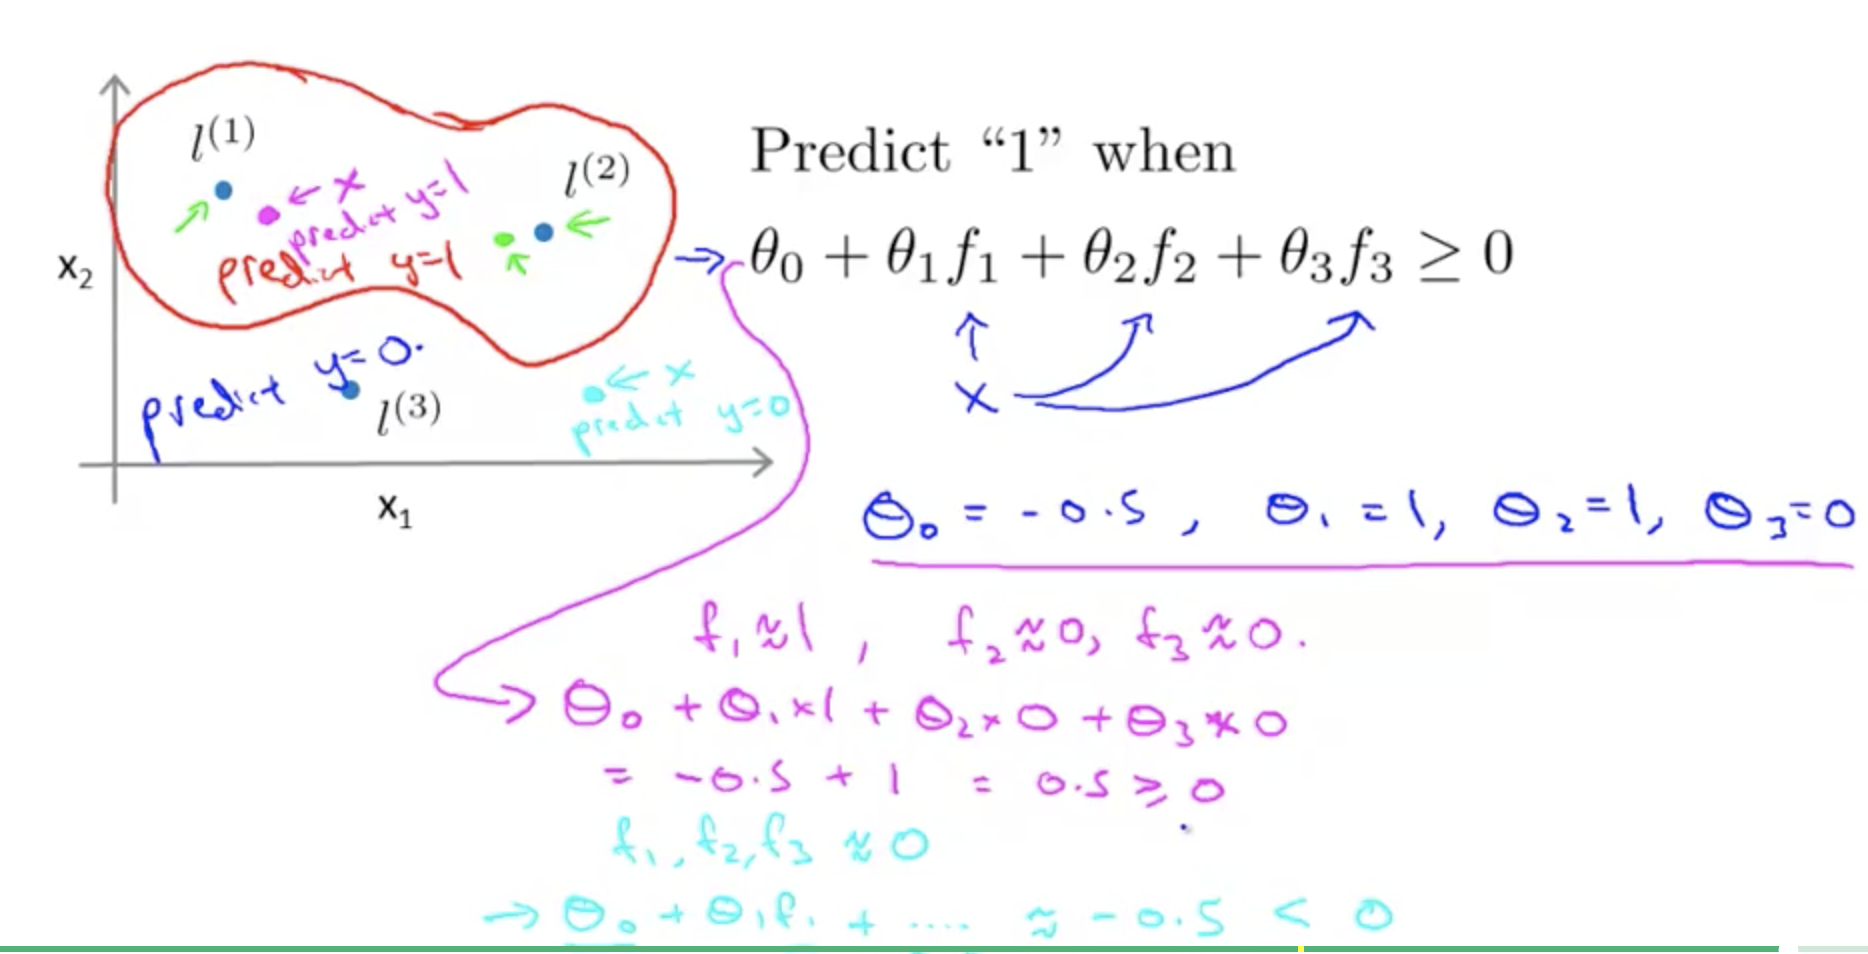 l^(1)
l^(2)
← x
predict y=1
predict y=1
x₂
predict y=0.
l^(3)
← x
predict y=0
x₁
Predict “1” when
⇒ θ₀ + θ₁f₁ + θ₂f₂ + θ₃f₃ ≥ 0
x
θ₀ = -0.5, θ₁=1, θ₂=1, θ₃=0
f₁≈1, f₂≈0, f₃≈0.
θ₀ + θ₁×1 + θ₂×0 + θ₃×0
= -0.5 + 1 = 0.5 ≥ 0
f₁, f₂, f₃ ≈ 0
→ θ₀ + θ₁f₁ + .... ≈ -0.5 < 0